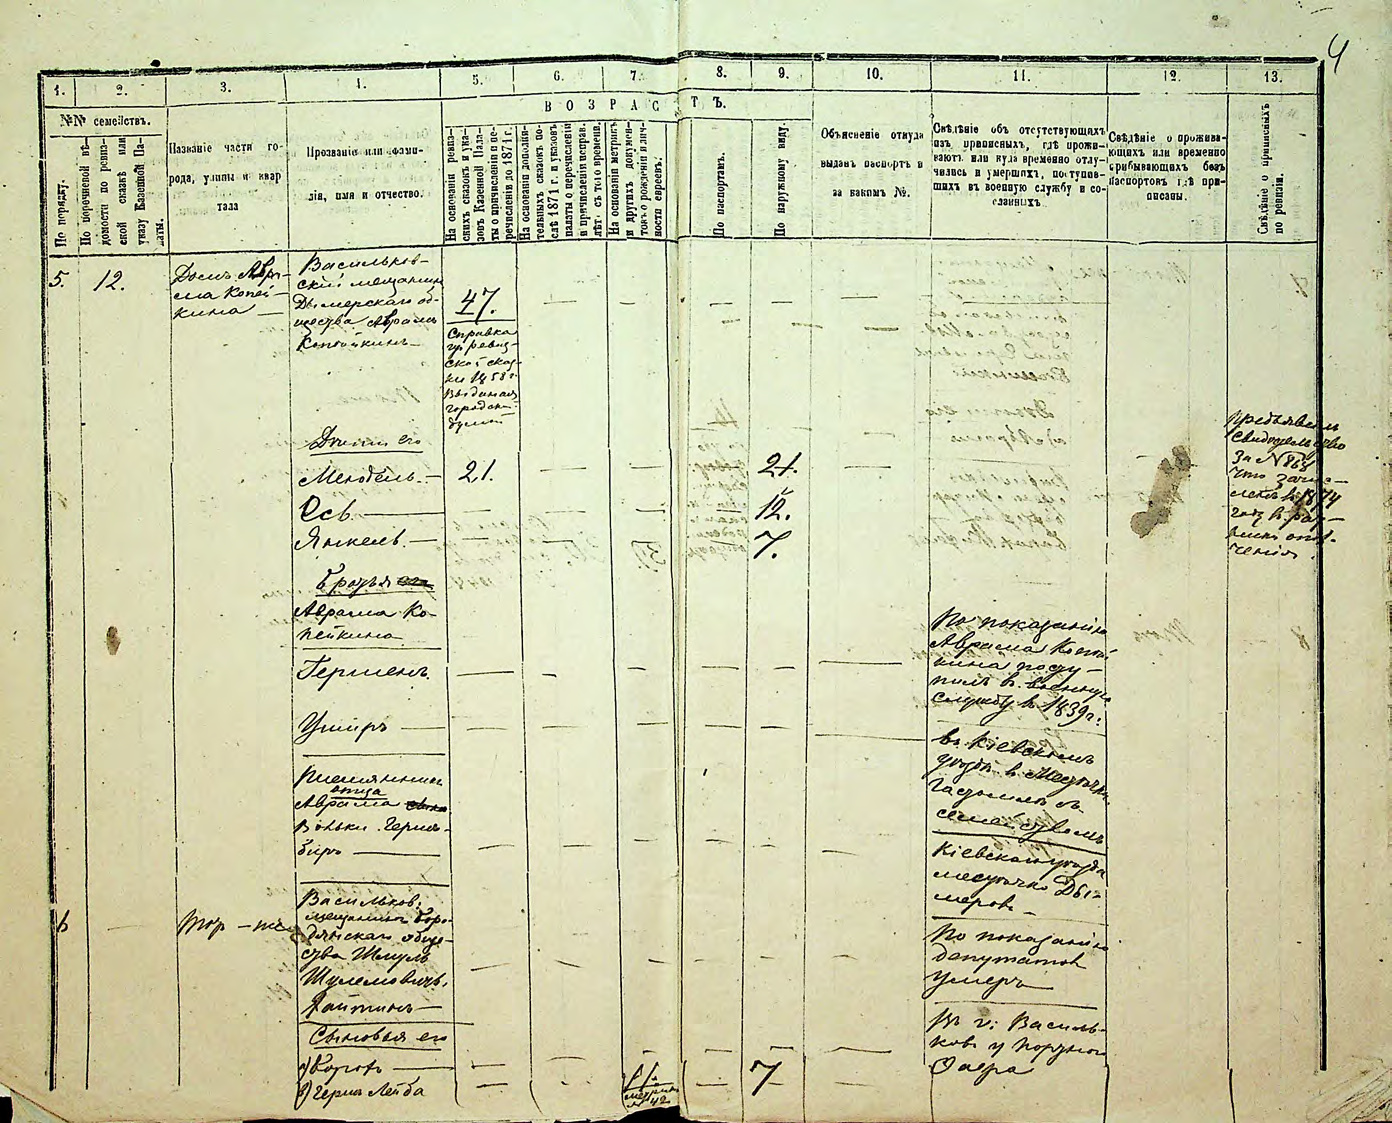 4
1. 2. 3. 4. 5. 6. 7. 8. 9. 10. 11. 12. 13.
№№ семействъ.
По порядку.
По перечневой вѣ-
домости по ревиз-
ской сказкѣ или
указу Казенной Па-
латы.
Названіе части го-
рода, улицы и квар
тала
Прозваніе или фами-
лія, имя и отчество.
ВОЗРАСТЪ.
На основаніи ревиз-
скихъ сказокъ и ука-
зовъ Казенной Пала-
ты о причисленіи и пе-
речисленіи до 1871 г.
На основаніи дополни-
тельныхъ сказокъ по-
слѣ 1871 г. и указовъ
палаты о перечисленіи
и причисленіи исправ.
лѣтъ съ того времени.
На основаніи метрикъ
и другихъ докумен-
товъ о рожденіи и лич-
ности евреевъ.
По паспортамъ.
По наружному виду.
Объясненіе откуда
выданъ паспортъ и
за какимъ №.
Свѣдѣніе объ отсутствующихъ
изъ приписныхъ, гдѣ прожи-
ваютъ или куда временно отлу-
чились и умершихъ, поступив-
шихъ въ военную службу и со-
сланныхъ
Свѣдѣніе о прожива-
ющихъ или временно
прибывающихъ безъ
паспортовъ гдѣ при-
писаны.
Свѣдѣніе о приписныхъ
по ревизіи.
5. 12.
Домъ Авра-
ма Копей-
кина
Васильков-
скій мещанинъ
Дымерскаго об-
щества Аврамъ
Копѣйкинъ
47.
Справка
ревиз-
ской сказ-
ки 1858 г.
Выданая
городск.
думой
его
Мендель. 21. 21.
Ось 12.
Янкель. 7.
Предъявилъ
свидѣтельство
за № 868
что зачис-
ленъ въ 1874
году въ рат-
ники опол-
ченія
Братья
Аврама Ко-
пейкина
Гершенъ.
По показанію
Аврама Копей-
кина посту-
пилъ въ военную
службу въ 1839 г.
Ушеръ
въ Кіевскомъ
уѣздѣ въ Местечкѣ
съ
семействомъ
Племянникъ
отца
Аврама
Воньки Герш-
беръ
Кіевскаго уѣзда
местечко Ды-
меровъ
6
тор-же
Васильков.
мещанинъ Боро-
дянскаго обще-
ства Шмуль
Шулемовичъ
По показанію
депутатовъ
умеръ
Сыновья его
Въ г: Василь-
ковѣ у
1)
2) Гершъ Лейба
11.
метрика
№ 42
7